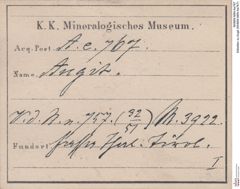 K. K. Mineralogisches Museum.
Acq. Post A. c. 767.
Name Augit.
V. d. N. n. 757. (32/51) M. 3922.
Fundort Fassa Thal. Tirol.
I